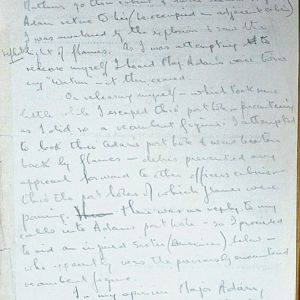 Mathews go thro'
Adam retire to his (he occupied an adjacent cabin)
I was awakened by the explosion & saw the
light of flames. As I was attempting to
release myself I heard Maj Adams voice twice
cry "
On releasing myself – which took some
little while I escaped thro' port hole – encountering
as I did so a recumbent figure: I attempted
to look thro Adams port hole & was beaten
back by flames – debris prevented any
approach forward to other officers cabins
thro' the port holes of which flames were
pouring. There was no reply to my
calls into Adams port hole – so I proceeded
to aid an injured Sister (American) below –
who apparently was the previously encountered
recumbent figure.
In my opinion Major Adams,